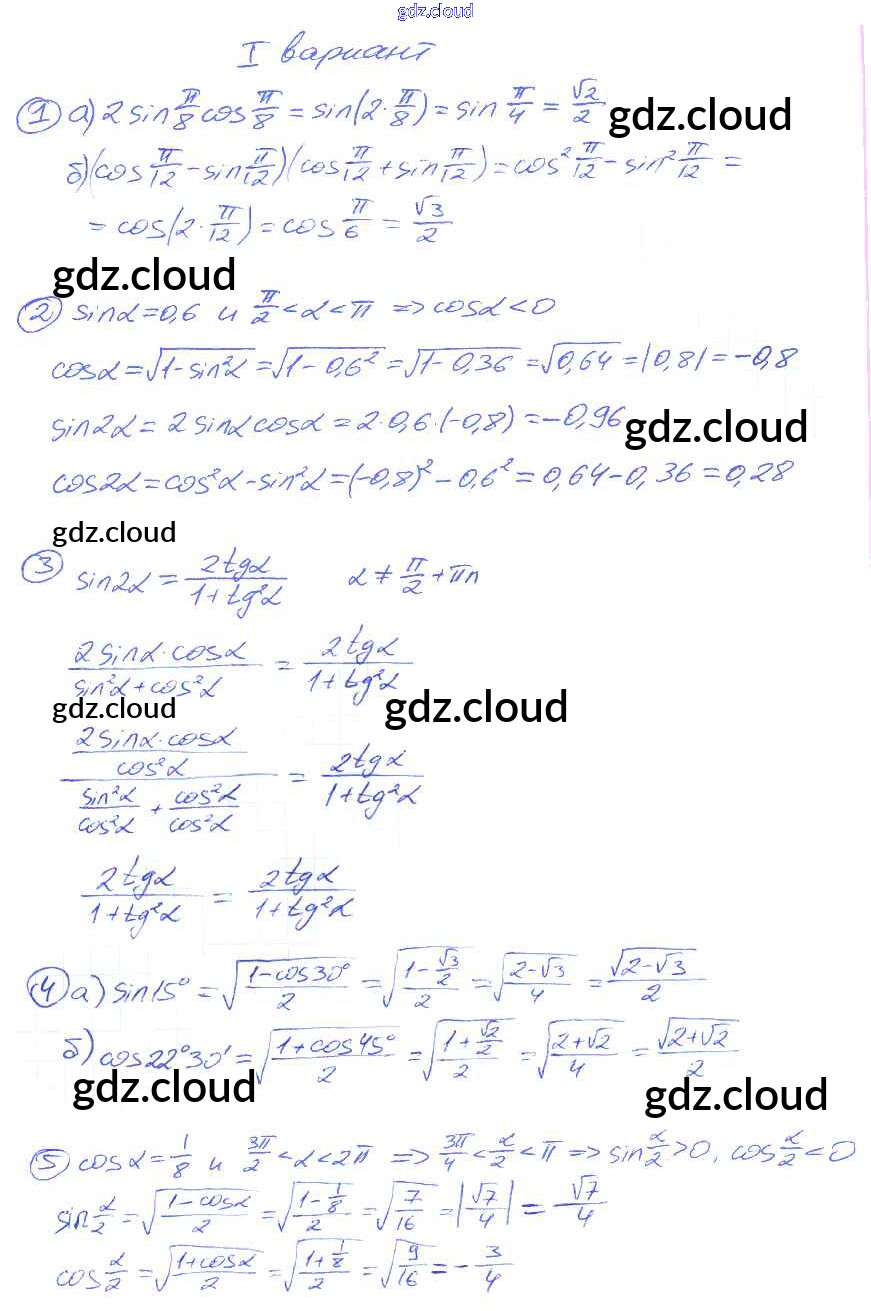 gdz.cloud
I вариант
① а) 2 sin π/8 cos π/8 = sin(2·π/8) = sin π/4 = √2/2 gdz.cloud
б) (cos π/12 - sin π/12)(cos π/12 + sin π/12) = cos² π/12 - sin² π/12 =
= cos(2·π/12) = cos π/6 = √3/2
gdz.cloud
② sinα = 0,6 и π/2 < α < π => cosα < 0
cosα = √(1-sin²α) = √(1-0,6²) = √(1-0,36) = √0,64 = |0,8| = -0,8
sin2α = 2 sinα cosα = 2·0,6·(-0,8) = -0,96 gdz.cloud
cos2α = cos²α - sin²α = (-0,8)² - 0,6² = 0,64 - 0,36 = 0,28
gdz.cloud
③ sin2α = 2tgα/(1+tg²α) α ≠ π/2 + πn
(2 sinα·cosα)/(sin²α + cos²α) = 2tgα/(1+tg²α)
gdz.cloud gdz.cloud
((2 sinα·cosα)/cos²α)/(sin²α/cos²α + cos²α/cos²α) = 2tgα/(1+tg²α)
2tgα/(1+tg²α) = 2tgα/(1+tg²α)
④ а) sin15° = √((1-cos30°)/2) = √((1-√3/2)/2) = √((2-√3)/4) = √(2-√3)/2
б) cos22°30' = √((1+cos45°)/2) = √((1+√2/2)/2) = √((2+√2)/4) = √(2+√2)/2
gdz.cloud gdz.cloud
⑤ cosα = 1/8 и 3π/2 < α < 2π => 3π/4 < α/2 < π => sin α/2 > 0, cos α/2 < 0
sin α/2 = √((1-cosα)/2) = √((1-1/8)/2) = √(7/16) = |√7/4| = √7/4
cos α/2 = √((1+cosα)/2) = √((1+1/8)/2) = √(9/16) = -3/4